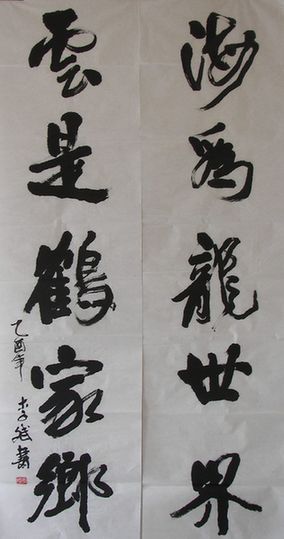 海為龍世界
雲是鶴家鄉
乙酉年
李成書